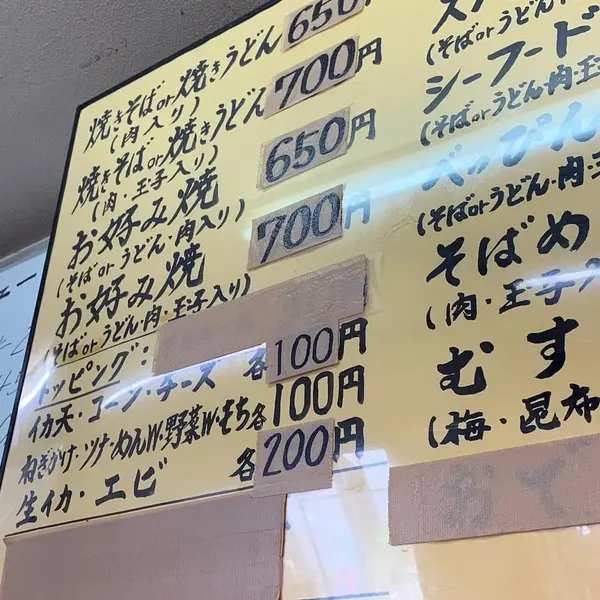 焼きそばor焼きうどん 650円
(肉入り)
焼きそばor焼きうどん 700円
(肉・玉子入り)
お好み焼 650円
(そばorうどん・肉入り)
お好み焼 700円
(そばorうどん・肉・玉子入り)
トッピング:
イカ天・コーン・チーズ 各100円
ねぎかけ・ツナ・めんW・野菜W・もち各100円
生イカ・エビ 各200円
(そばorうどん・肉
シーフード
(そばorうどん・肉・
べっぴん
(そばorうどん・肉・
そばめ
(肉・玉子入
むす
(梅・昆布
おで